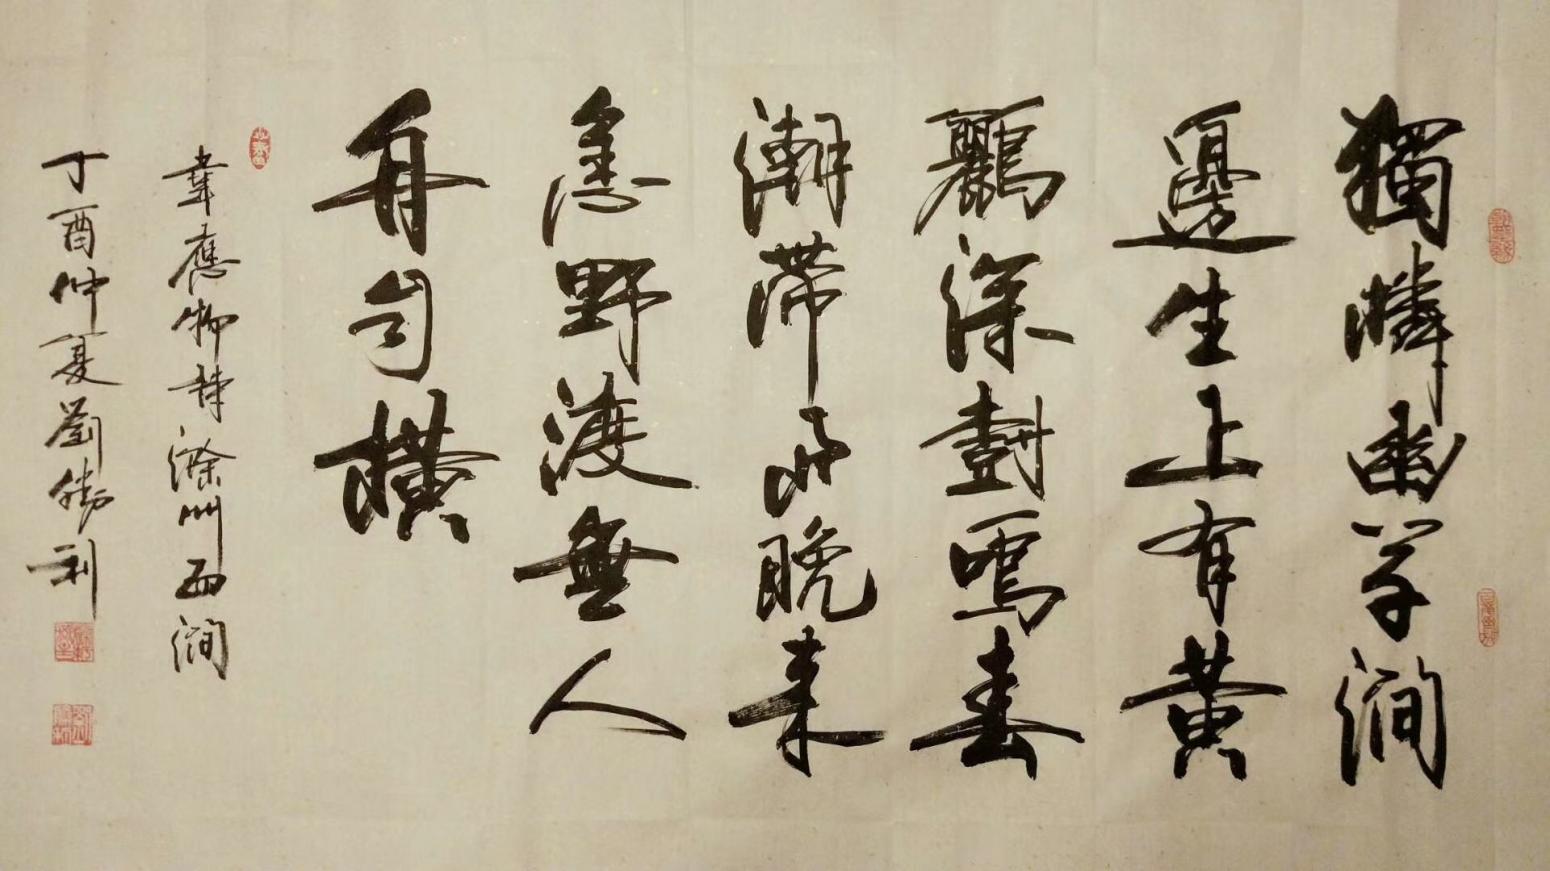 獨憐幽草澗
邊生上有黄
鸝深樹鳴春
潮帶雨晚来
急野渡無人
舟自横
韋應物詩滁州西澗
丁酉仲夏劉勝利